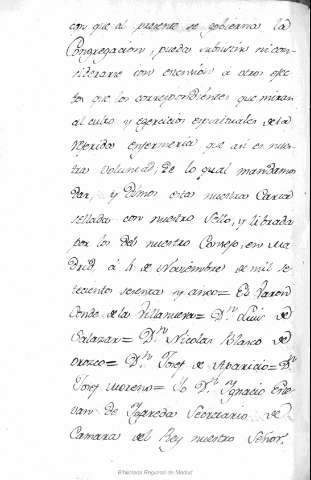 con que al presente se gobierna la
Congregacion, pueda subsistir ni con-
siderarse con extension a otros efec-
tos que los correspondientes que miran
al culto y exercicios espirituales de la
referida enfermeria que asi es nues-
tra voluntad; de lo qual mandamos
dar, y dimos esta nuestra Carta
sellada con nuestro Sello, y librada
por los del nuestro Consejo, en Ma-
drid, á 4 de Noviembre de mil se-
tecientos setenta y cinco = El Varon
Conde de la Villanueva = Dn. Luis de
Salazar = Dn. Nicolas Blasco de
Orozco = Dn. Josef de Aparicio = Dn.
Josef Moreno = Yo Dn. Ygnacio Este-
van de Ygareda Secretario de
Camara del Rey nuestro Señor,
Biblioteca Regional de Madrid